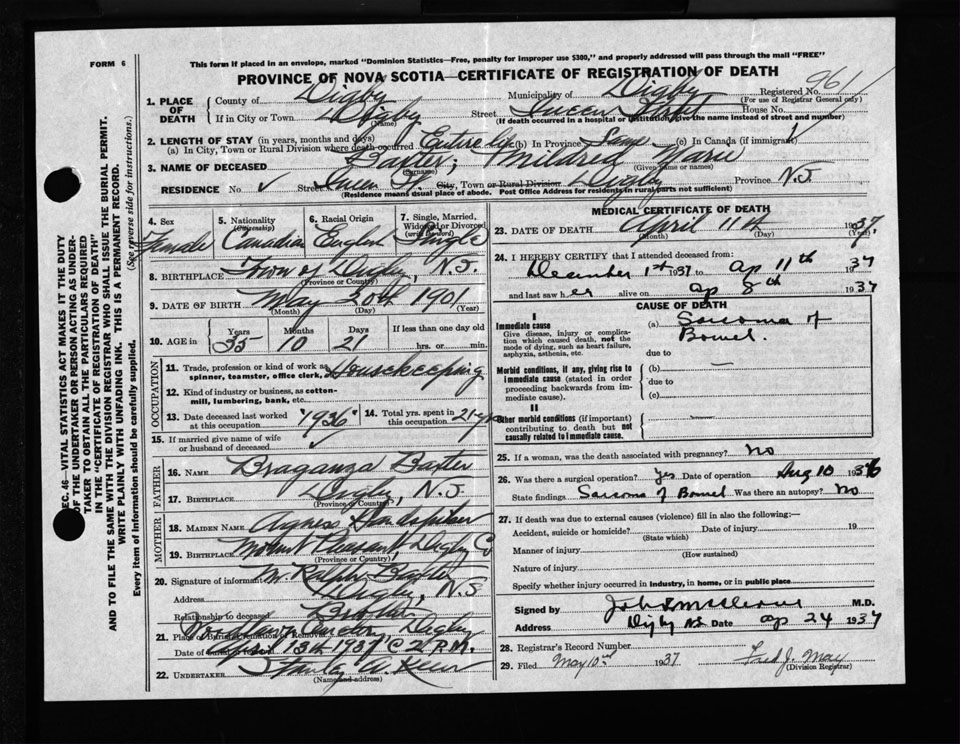 FORM 6
This form if placed in an envelope, marked "Dominion Statistics—Free, penalty for improper use $300," and properly addressed will pass through the mail "FREE"
PROVINCE OF NOVA SCOTIA—CERTIFICATE OF REGISTRATION OF DEATH
Registered No. 961
(For use of Registrar General only)
1. PLACE OF DEATH
County of Digby Municipality of Digby
If in City or Town Digby Street Queen Street House No.
(Name) (If death occurred in a hospital or institution give the name instead of street and number)
2. LENGTH OF STAY (in years, months and days)
(a) In City, Town or Rural Division where death occurred Entire life (b) In Province Same (c) In Canada (if immigrant)
3. NAME OF DECEASED Baxter, Mildred Marie
(Surname) (Given name or names)
RESIDENCE No. Street Queen St. City, Town or Rural Division Digby Province N.S.
(Residence means usual place of abode. Post Office Address for residents in rural parts not sufficient)
4. Sex Female
5. Nationality (Citizenship) Canadian
6. Racial Origin English
7. Single, Married, Widowed or Divorced (write the word) Single
8. BIRTHPLACE Town of Digby, N.S.
(Province or Country)
9. DATE OF BIRTH May 20th 1901
(Month) (Day) (Year)
10. AGE in Years 35 Months 10 Days 21 If less than one day old
hrs. or min.
OCCUPATION
11. Trade, profession or kind of work as spinner, teamster, office clerk, Housekeeping
12. Kind of industry or business, as cotton-mill, lumbering, bank, etc.
13. Date deceased last worked at this occupation 1936
14. Total yrs. spent in this occupation 21 yrs
15. If married give name of wife or husband of deceased
FATHER
16. NAME Braganza Baxter
17. BIRTHPLACE Digby, N.S.
(Province or Country)
MOTHER
18. MAIDEN NAME Agness
19. BIRTHPLACE Mount Pleasant, Digby Co
(Province or Country)
20. Signature of informant M. Ralph Baxter
Address Digby, N.S
Relationship to deceased Brother
21. Place of Burial, Cremation or Removal Digby
Date of Burial April 13th 1937 2 P.M.
22. UNDERTAKER Stanley
(Name and address)
MEDICAL CERTIFICATE OF DEATH
23. DATE OF DEATH April 11th 1937
(Month) (Day) (Year)
24. I HEREBY CERTIFY that I attended deceased from:
December 1st 37 to Ap 11th 1937
and last saw her alive on ap 8th 1937
CAUSE OF DEATH
I
Immediate cause
Give disease, injury or complication which caused death, not the mode of dying, such as heart failure, asphyxia, asthenia, etc.
(a) Sarcoma of Bowel.
due to
Morbid conditions, if any, giving rise to immediate cause (stated in order proceeding backwards from immediate cause).
(b)
due to
(c)
II
Other morbid conditions (if important) contributing to death but not causally related to immediate cause.
25. If a woman, was the death associated with pregnancy? No
26. Was there a surgical operation? Yes Date of operation Aug 10 1936
State findings Sarcoma of Bowel Was there an autopsy? No
27. If death was due to external causes (violence) fill in also the following:—
Accident, suicide or homicide? Date of injury 19
(State which)
Manner of injury
(How sustained)
Nature of injury
Specify whether injury occurred in industry, in home, or in public place
Signed by M.D.
Address Digby NS Date ap 24 1937
28. Registrar's Record Number
29. Filed May 10 1937 Fred J. May
(Division Registrar)
SEC. 46—VITAL STATISTICS ACT MAKES IT THE DUTY
OF THE UNDERTAKER OR PERSON ACTING AS UNDERTAKER TO OBTAIN ALL THE PARTICULARS REQUIRED
IN THE "CERTIFICATE OF REGISTRATION OF DEATH"
AND TO FILE THE SAME WITH THE DIVISION REGISTRAR WHO SHALL ISSUE THE BURIAL PERMIT.
WRITE PLAINLY WITH UNFADING INK. THIS IS A PERMANENT RECORD.
Every item of information should be carefully supplied. (See reverse side for instructions.)